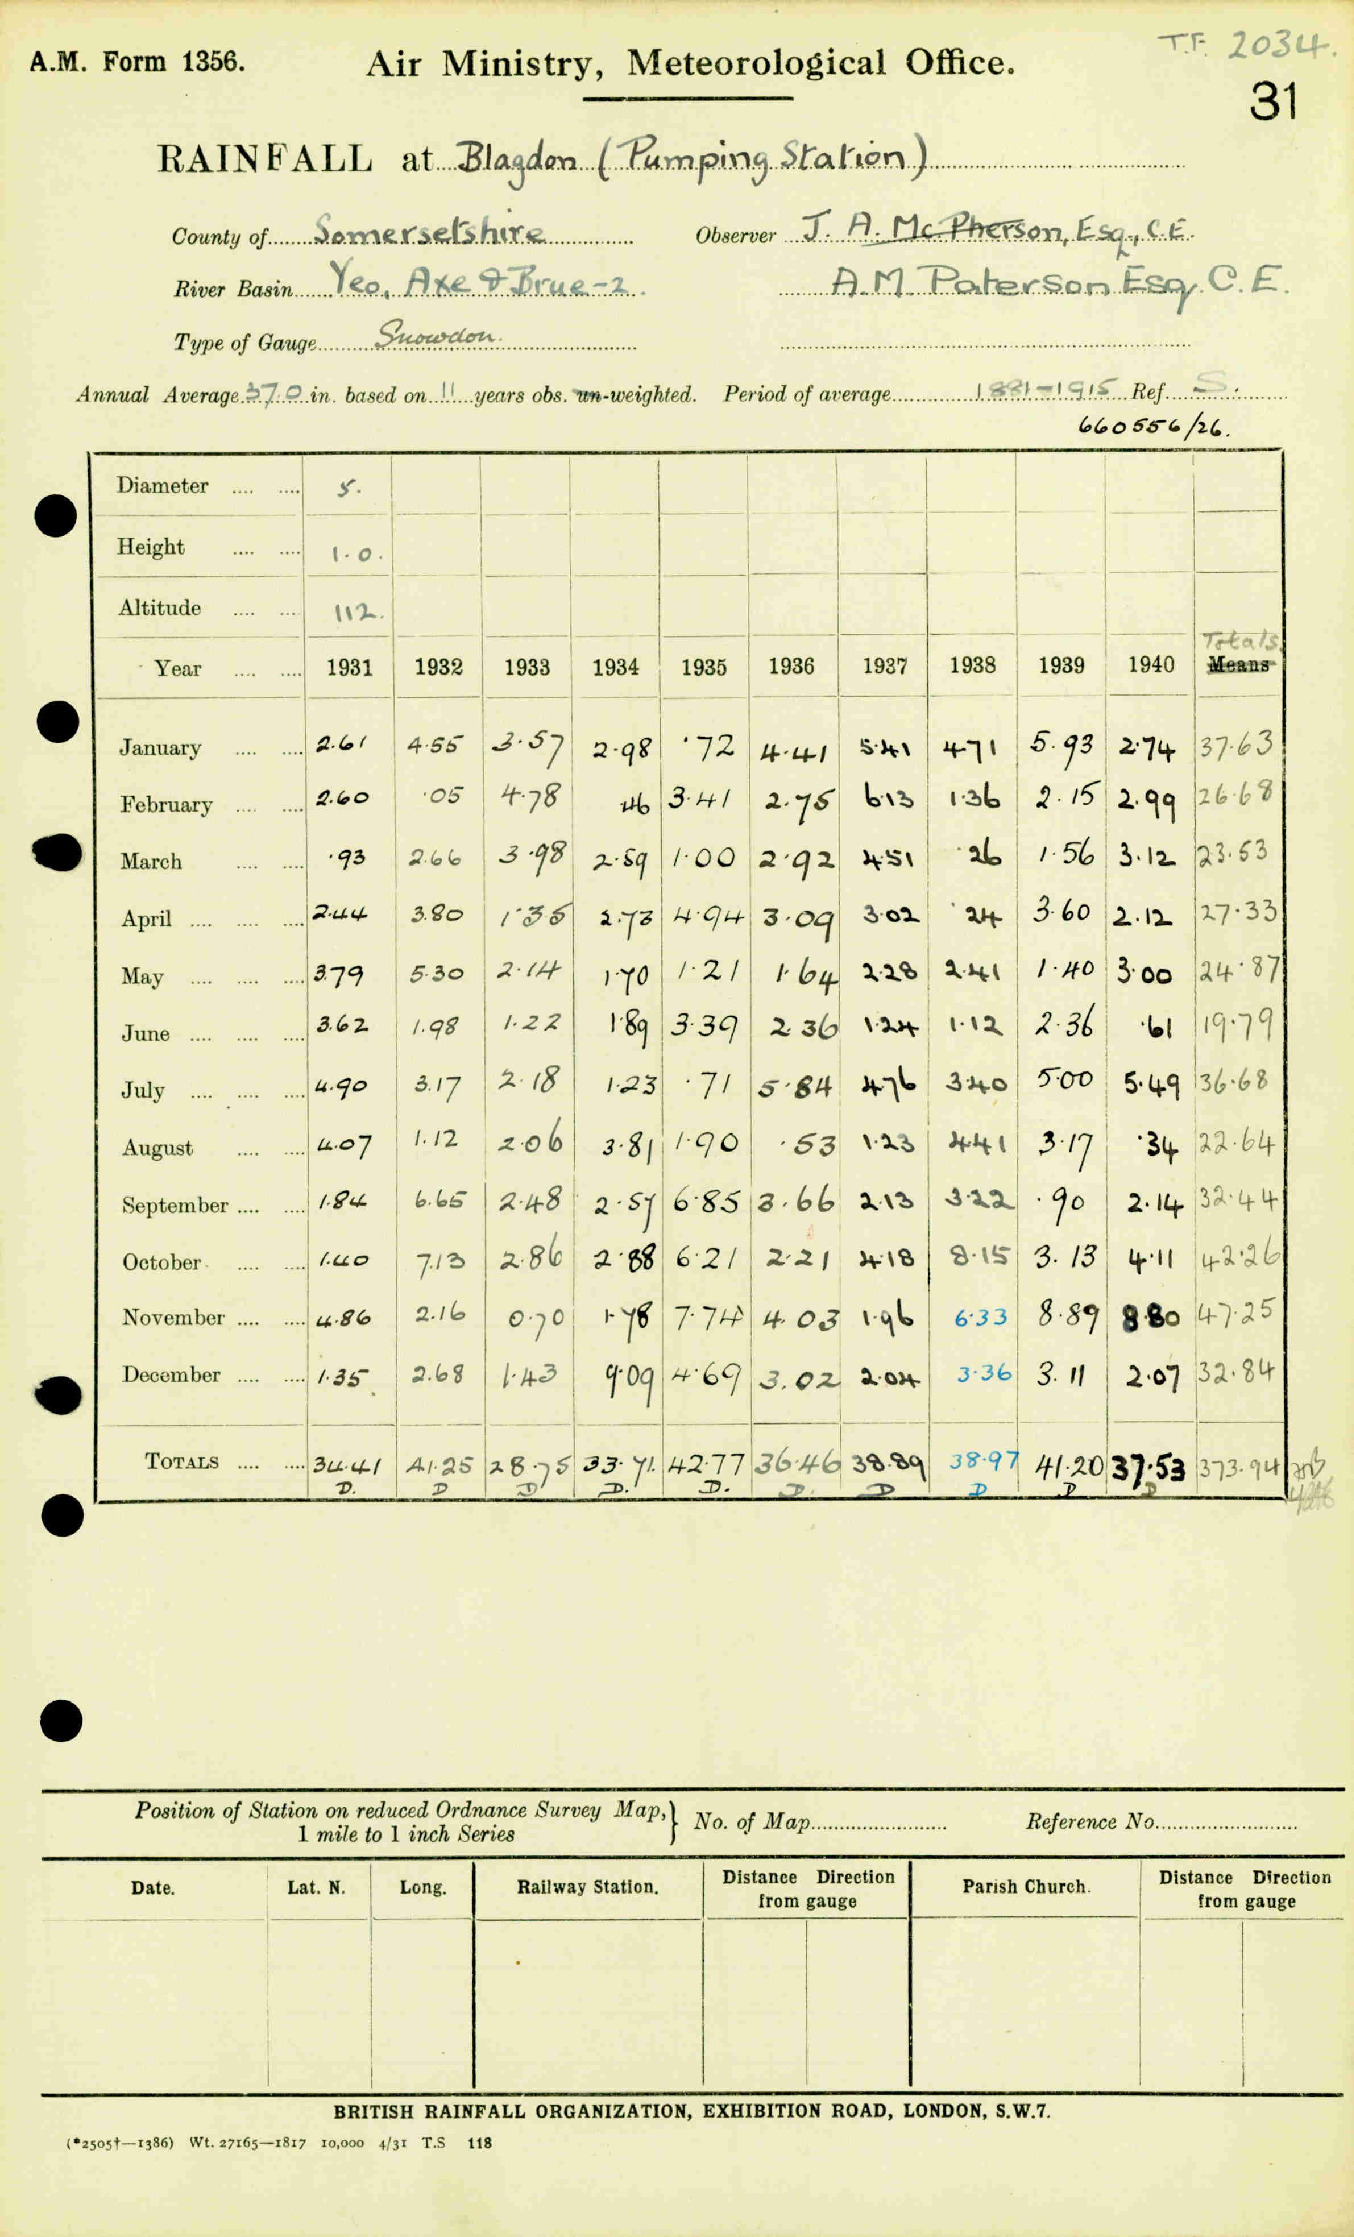 T.F. 2034.
A.M. Form 1356. Air Ministry, Meteorological Office.
31
RAINFALL at Blagdon (Pumping Station)
County of Somersetshire Observer J. A. McPherson, Esq., C.E.
River Basin Yeo, Axe & Brue-2. A.M. Paterson Esq. C.E.
Type of Gauge Snowdon.
Annual Average 37.0 in. based on 11 years obs. un-weighted. Period of average 1881-1915 Ref. S.
660556/26.
Diameter .... .... 5.
Height .... .... 1.0.
Altitude .... .... 112.
Totals.
Year .... .... 1931 1932 1933 1934 1935 1936 1937 1938 1939 1940 Means
January .... .... 2.61 4.55 3.57 2.98 .72 4.41 5.41 4.71 5.93 2.74 37.63
February .... .... 2.60 .05 4.78 .46 3.41 2.75 6.13 1.36 2.15 2.99 26.68
March .... .... .93 2.66 3.98 2.59 1.00 2.92 4.51 .26 1.56 3.12 23.53
April .... .... .... 2.44 3.80 1.35 2.73 4.94 3.09 3.02 .24 3.60 2.12 27.33
May .... .... .... 3.79 5.30 2.14 1.70 1.21 1.64 2.28 2.41 1.40 3.00 24.87
June .... .... .... 3.62 1.98 1.22 1.89 3.39 2.36 1.24 1.12 2.36 .61 19.79
July .... .... .... 4.90 3.17 2.18 1.23 .71 5.84 4.76 3.40 5.00 5.49 36.68
August .... .... 4.07 1.12 2.06 3.81 1.90 .53 1.23 4.41 3.17 .34 22.64
September .... .... 1.84 6.65 2.48 2.57 6.85 3.66 2.13 3.22 .90 2.14 32.44
October .... .... 1.40 7.13 2.86 2.88 6.21 2.21 4.18 8.15 3.13 4.11 42.26
November .... .... 4.86 2.16 0.70 1.78 7.74 4.03 1.96 6.33 8.89 8.80 47.25
December .... .... 1.35 2.68 1.43 9.09 4.69 3.02 2.04 3.36 3.11 2.07 32.84
TOTALS .... .... 34.41 41.25 28.75 33.71. 42.77 36.46 38.89 38.97 41.20 37.53 373.94
D. D D D. D. D. D D D D
Position of Station on reduced Ordnance Survey Map,} No. of Map Reference No.
1 mile to 1 inch Series
Date. Lat. N. Long. Railway Station. Distance Direction from gauge Parish Church. Distance Direction from gauge
BRITISH RAINFALL ORGANIZATION, EXHIBITION ROAD, LONDON, S.W.7.
(*2505†—1386) Wt. 27165—1817 10,000 4/31 T.S 118